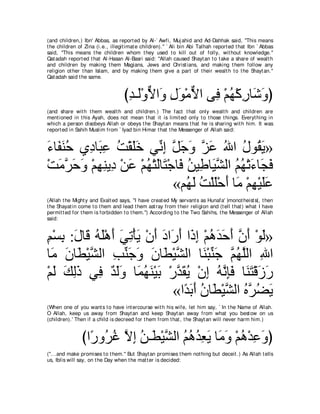 (and children,) Ibn' Abbas, as reported by Al-`Awfi, Mujahid and Ad-Dahhak said, "This means
the children of Zina (i.e., illegitimate children).'' `Ali bin Abi Talhah reported that Ibn `Abbas
said; "This means the children whom they used to kill out of folly, without knowledge.''
Qatadah reported that Al-Hasan Al-Basri said: "Allah caused Shaytan to take a share of wealth
and children by making them Magians, Jews and Christians, and making them follow any
religion other than Islam, and by making them give a part of their wealth to the Shaytan.''
Qatadah said the same.
(وَشَارِكْهُمْ فِى الاٌّمْوَلِ وَالاٌّوْلَـدِ)
(and share with them wealth and children.) The fact that only wealth and children are
mentioned in this Ayah, does not mean that it is limited only to those things. Everything in
which a person disobeys Allah or obeys the Shaytan means that he is sharing with him. It was
reported in Sahih Muslim from `Iyad bin Himar that the Messenger of Allah said:
«يَقُولُ اللهُ عَزَّ وَجَلَّ إِنِّي خَلَقْتُ عِبَادِي حُنَفَاءَ
فَجَاءَتْهُمُ الشَّيَاطِينُ فَاجْتَالَتْهُمْ عَنْ دِينِهِمْ وَحَرَّمَتْ
عَلَيْهِمْ مَا أَحْلَلْتُ لَهُم»
(Allah the Mighty and Exalted says, "I have created My servants as Hunafa' (monotheists), then
the Shayatin come to them and lead them astray from their religion and (tell that) what I have
permitted for them is forbidden to them.'') According to the Two Sahihs, the Messenger of Allah
said:
«لَوْ أَنَّ أَحَدَهُمْ إِذَا أَرَادَ أَنْ يَأْتِيَ أَهْلَهُ قَالَ: بِسْمِ
اللهِ اللَّهُمَّ جَنِّبْنَا الشَّيْطَانَ وَجَنِّبِ الشَّيْطَانَ مَا
رَزَقْتَنَا فَإِنَّهُ إِنْ يُقَدَّرْ بَيْنَهُمَا وَلَدٌ فِي ذَلِكَ لَمْ
يَضُرَّهُ الشَّيْطَانُ أَبَدًا»
(When one of you wants to have intercourse with his wife, let him say, `In the Name of Allah.
O Allah, keep us away from Shaytan and keep Shaytan away from what you bestow on us
(children).' Then if a child is decreed for them from that, the Shaytan will never harm him.)
(وَعِدْهُمْ وَمَا يَعِدُهُمُ الشَّيْطَـنُ إِلاَّ غُرُورًا)
("...and make promises to them.'' But Shaytan promises them nothing but deceit.) As Allah tells
us, Iblis will say, on the Day when the matter is decided: